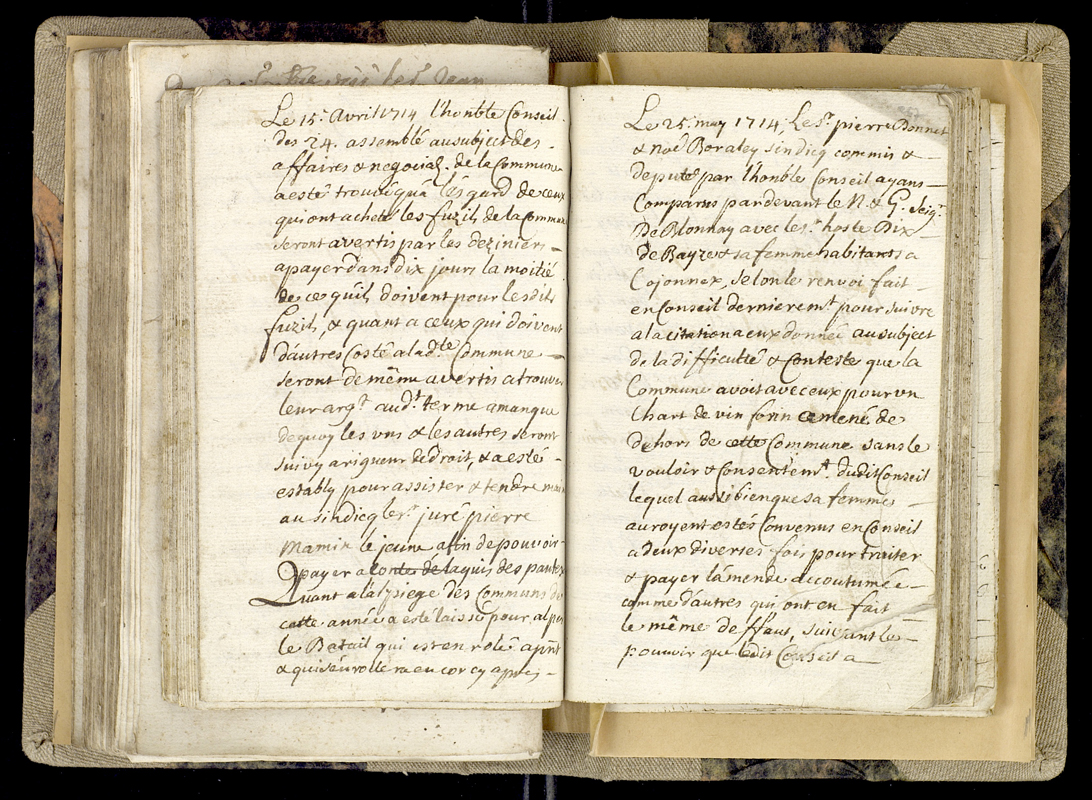 Le 15.e Avril 1714 l'honble Conseil
des 24. assemblé au subject des
affaires & negocia.s de la Commune
a esté trouvé qu'a l'esgard de ceux
qui ont acheté les fuzils de la Commune
seront avertis par les dezeniers
a payer dans dix jours la moitié
de ce qu'ils doivent pour lesdits
fuzils, & quant a ceux qui doivent
d'autres Costé a lad.te Commune
seront de même avertis a trouver
leur arg.t aud.t terme a manque
de quoy les uns & les autres seront
suivy a rigueur de droit, & a esté
estably pour assister & tendre main
au sindicq le s.r juré pierre
Mamin le jeune afin de pouvoir
payer a des pautex
Quant a l'alpsiege des Communs de
cette année a esté laissé pour alper
le Betail qui est en role a jnt
& qui s'enrollera encor cy apres
Le 25.e may 1714, Le S.r pierre Bonnet
& noé Boraley sindicq commis &
deputé par l'honble Conseil ayans
Comparus par devant le N. & G. Seig.r
De Blonnay avec le s.r hoste Dix
de Bayze & sa femme habitants a
Cojonnex, selon le renvoi fait
en Conseil dernierem.t pour suivre
a la citation a eux donnée au subject
de la difficulté & Conteste que la
Commune avoit avec eux pour un
Chart de vin forin amené de
dehors de cette Commune sans le
vouloir & Consentem.t dudit Conseil
lequel aussi bien que sa femme
auroyent estés Convenus en Conseil
a deux diverses fois pour traiter
& payer l'amende accoutumée
comme d'autres qui ont eu fait
le même deffaut, suivant le
pouvoir que ledit Conseil a